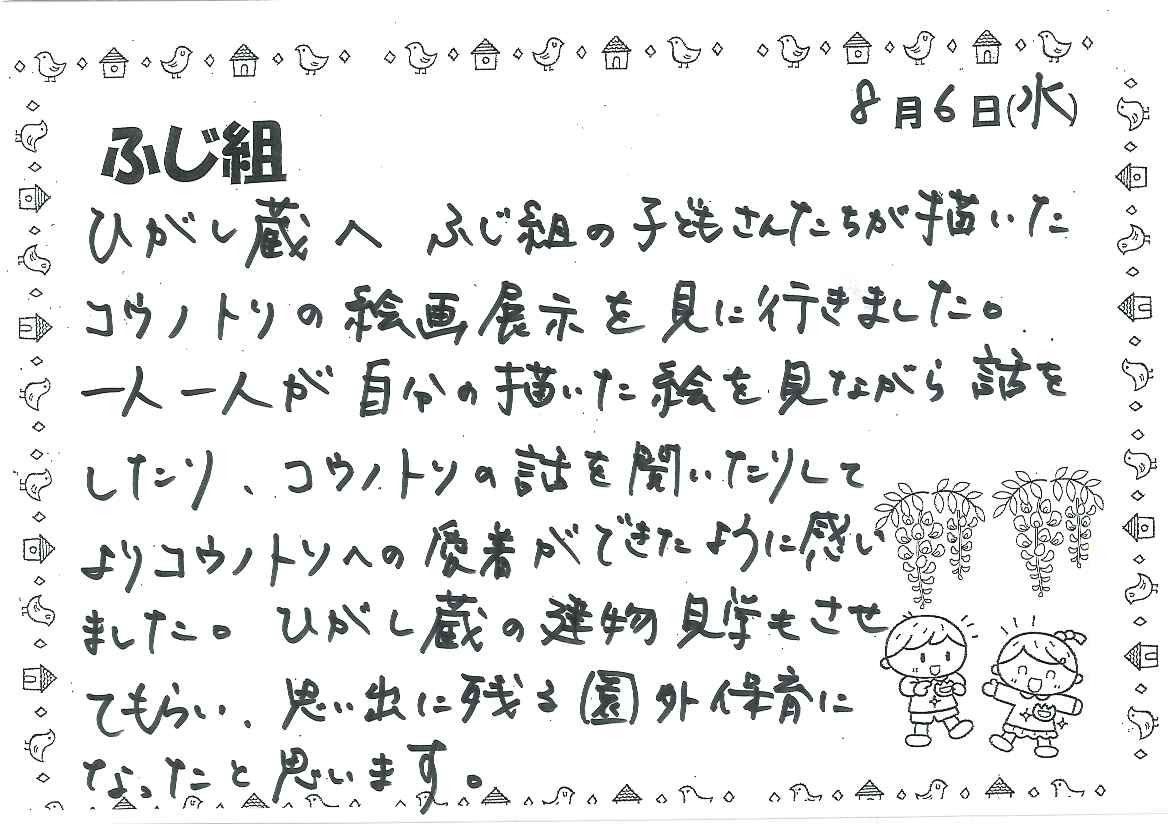 8月6日(水)
ふじ組
ひがし蔵へ ふじ組の子どもさんたちが描いた
コウノトリの絵画展示を見に行きました。
一人一人が自分の描いた絵を見ながら話を
したり、コウノトリの話を聞いたりして
よりコウノトリへの愛着ができたように感い
ました。ひがし蔵の建物見学もさせ
てもらい、思い出に残る園外保育に
なったと思います。